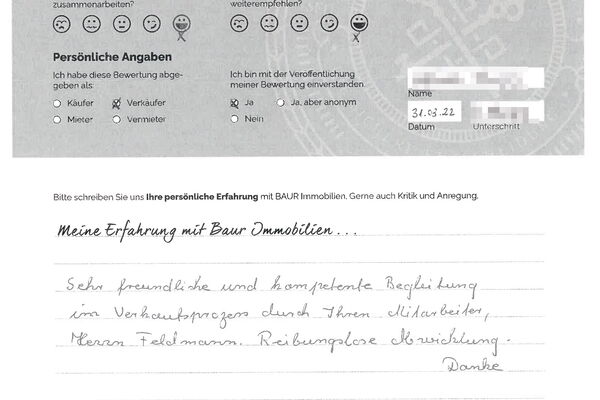 zusammenarbeiten?
weiterempfehlen?
Persönliche Angaben
Ich habe diese Bewertung abge-
geben als:
Käufer
Verkäufer
Mieter
Vermieter
Ich bin mit der Veröffentlichung
meiner Bewertung einverstanden.
Ja
Ja, aber anonym
Nein
Name
31.03.22
Datum
Unterschrift
Bitte schreiben Sie uns Ihre persönliche Erfahrung mit BAUR Immobilien, Gerne auch Kritik und Anregung.
Meine Erfahrung mit Baur Immobilien...
Sehr freundliche und kompetente Begleitung
im Verkaufsprozess durch Ihren Mitarbeiter,
Herrn Feldmann. Reibungslose Abwicklung.
Danke